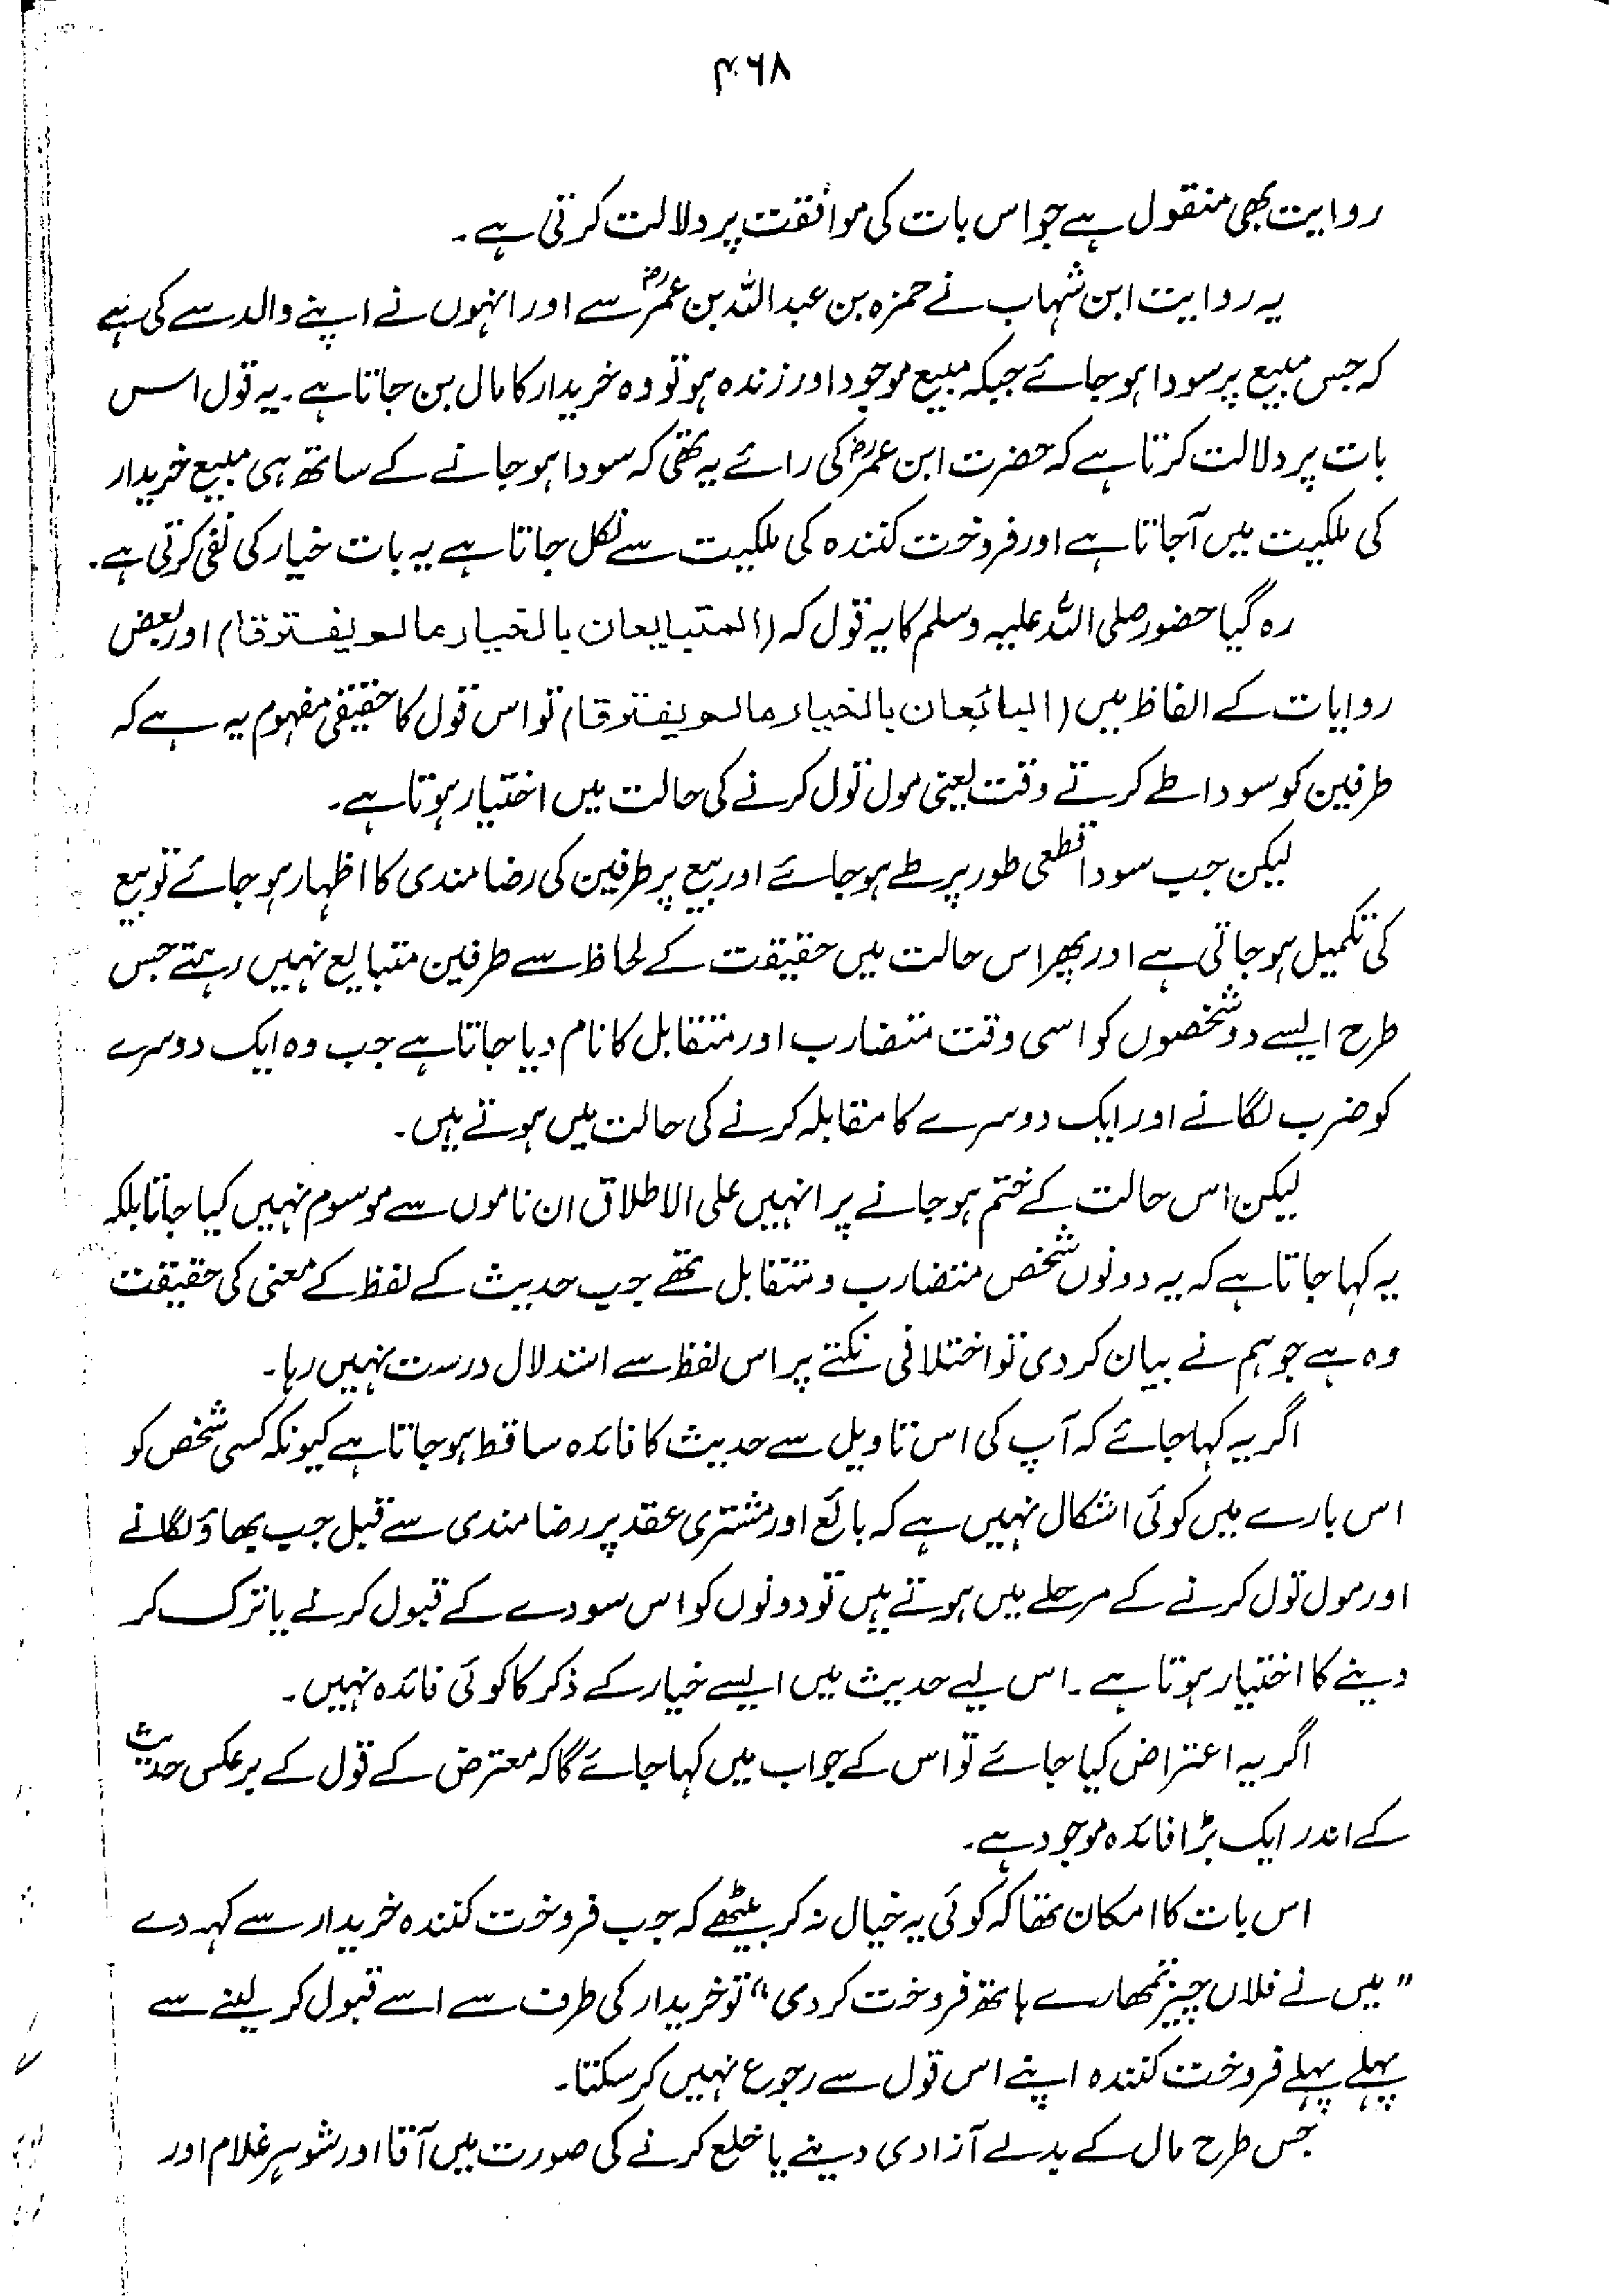 ۴۶۸
روایت بھی منقول ہے جو اس بات کی موافقت پر دلالت کرتی ہے۔
یہ روایت ابن شہاب نے حمزہ بن عبداللہ بن عمرؓ سے اور انہوں نے اپنے والد سے کی ہے
کہ جس مبیع پر سودا ہو جائے جبکہ مبیع موجود اور زندہ ہو تو وہ خریدار کا مال بن جاتا ہے۔ یہ قول اس
بات پر دلالت کرتا ہے کہ حضرت ابن عمرؓ کی رائے یہ تھی کہ سودا ہو جانے کے ساتھ ہی مبیع خریدار
کی ملکیت میں آجاتا ہے اور فروخت کنندہ کی ملکیت سے نکل جاتا ہے یہ بات خیار کی نفی کرتی ہے۔
رہ گیا حضور صلی اللہ علیہ وسلم کا یہ قول کہ (المتبایعان بالخیار مالم یفترقا) اور بعض
روایات کے الفاظ میں (البائعان بالخیار مالم یفترقا) تو اس قول کا حقیقی مفہوم یہ ہے کہ
طرفین کو سودا طے کرتے وقت یعنی مول تول کرنے کی حالت میں اختیار ہوتا ہے۔
لیکن جب سودا قطعی طور پر طے ہو جائے اور بیع پر طرفین کی رضامندی کا اظہار ہو جائے تو بیع
کی تکمیل ہو جاتی ہے اور پھر اس حالت میں حقیقت کے لحاظ سے طرفین متبایع نہیں رہتے جس
طرح ایسے دو شخصوں کو اسی وقت متضارب اور متقابل کا نام دیا جاتا ہے جب وہ ایک دوسرے
کو ضرب لگانے اور ایک دوسرے کا مقابلہ کرنے کی حالت میں ہوتے ہیں۔
لیکن اس حالت کے ختم ہو جانے پر انہیں علی الاطلاق ان ناموں سے موسوم نہیں کیا جاتا بلکہ
یہ کہا جاتا ہے کہ یہ دونوں شخص متضارب و متقابل تھے جب حدیث کے لفظ کے معنی کی حقیقت
وہ ہے جو ہم نے بیان کر دی تو اختلافی نکتے پر اس لفظ سے استدلال درست نہیں رہا۔
اگر یہ کہا جائے کہ آپ کی اس تاویل سے حدیث کا فائدہ ساقط ہو جاتا ہے کیونکہ کسی شخص کو
اس بارے میں کوئی اشکال نہیں ہے کہ بائع اور مشتری عقد پر رضامندی سے قبل جب بھاؤ لگانے
اور مول تول کرنے کے مرحلے میں ہوتے ہیں تو دونوں کو اس سودے کے قبول کرنے یا ترک کر
دینے کا اختیار ہوتا ہے۔ اس لیے حدیث میں ایسے خیار کے ذکر کا کوئی فائدہ نہیں۔
اگر یہ اعتراض کیا جائے تو اس کے جواب میں کہا جائے گا کہ معترض کے قول کے برعکس حدیث
کے اندر ایک بڑا فائدہ موجود ہے۔
اس بات کا امکان تھا کہ کوئی یہ خیال نہ کر بیٹھے کہ جب فروخت کنندہ خریدار سے کہہ دے
"میں نے فلاں چیز تمھارے ہاتھ فروخت کر دی" تو خریدار کی طرف سے اسے قبول کر لینے سے
پہلے پہلے فروخت کنندہ اپنے اس قول سے رجوع نہیں کر سکتا۔
جس طرح مال کے بدلے آزادی دینے یا خلع کرنے کی صورت میں آقا اور شوہر غلام اور